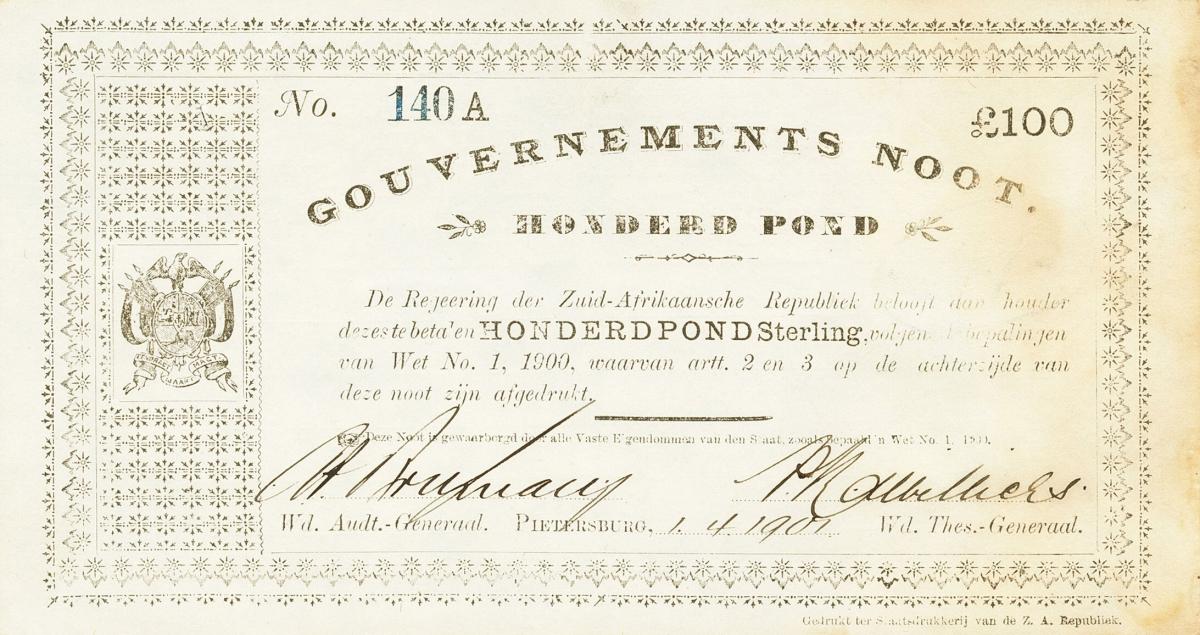 No. 140 A £100
GOUVERNEMENTS NOOT.
HONDERD POND
De Regeering der Zuid-Afrikaansche Republiek belooft aan houder
dezes te beta'en HONDERD POND Sterling, volgens bepalingen
van Wet No. 1, 1900, waarvan artt. 2 en 3 op de achterzijde van
deze noot zijn afgedrukt.
Deze Noot is gewaarborgd door alle Vaste Eigendommen van den Staat, zooals bepaald in Wet No. 1, 1900.
Wd. Audt.-Generaal. PIETERSBURG, 1. 4. 1901 Wd. Thes.-Generaal.
Gedrukt ter Staatsdrukkerij van de Z. A. Republiek.